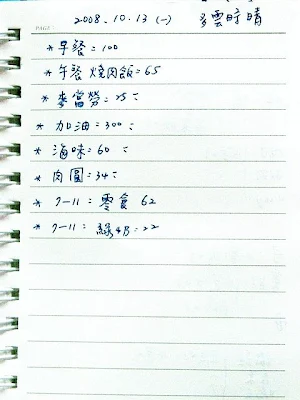 2008.10.13 (一) 多雲時晴
PAGE
* 早餐 = 100
* 午餐 燒肉飯 = 65
* 麥當勞 = 25元
* 加油 = 300元
* 滷味 = 60元
* 肉圓 = 34元
* 7-11: 零食 62
* 7-11: 綠奶 = 22